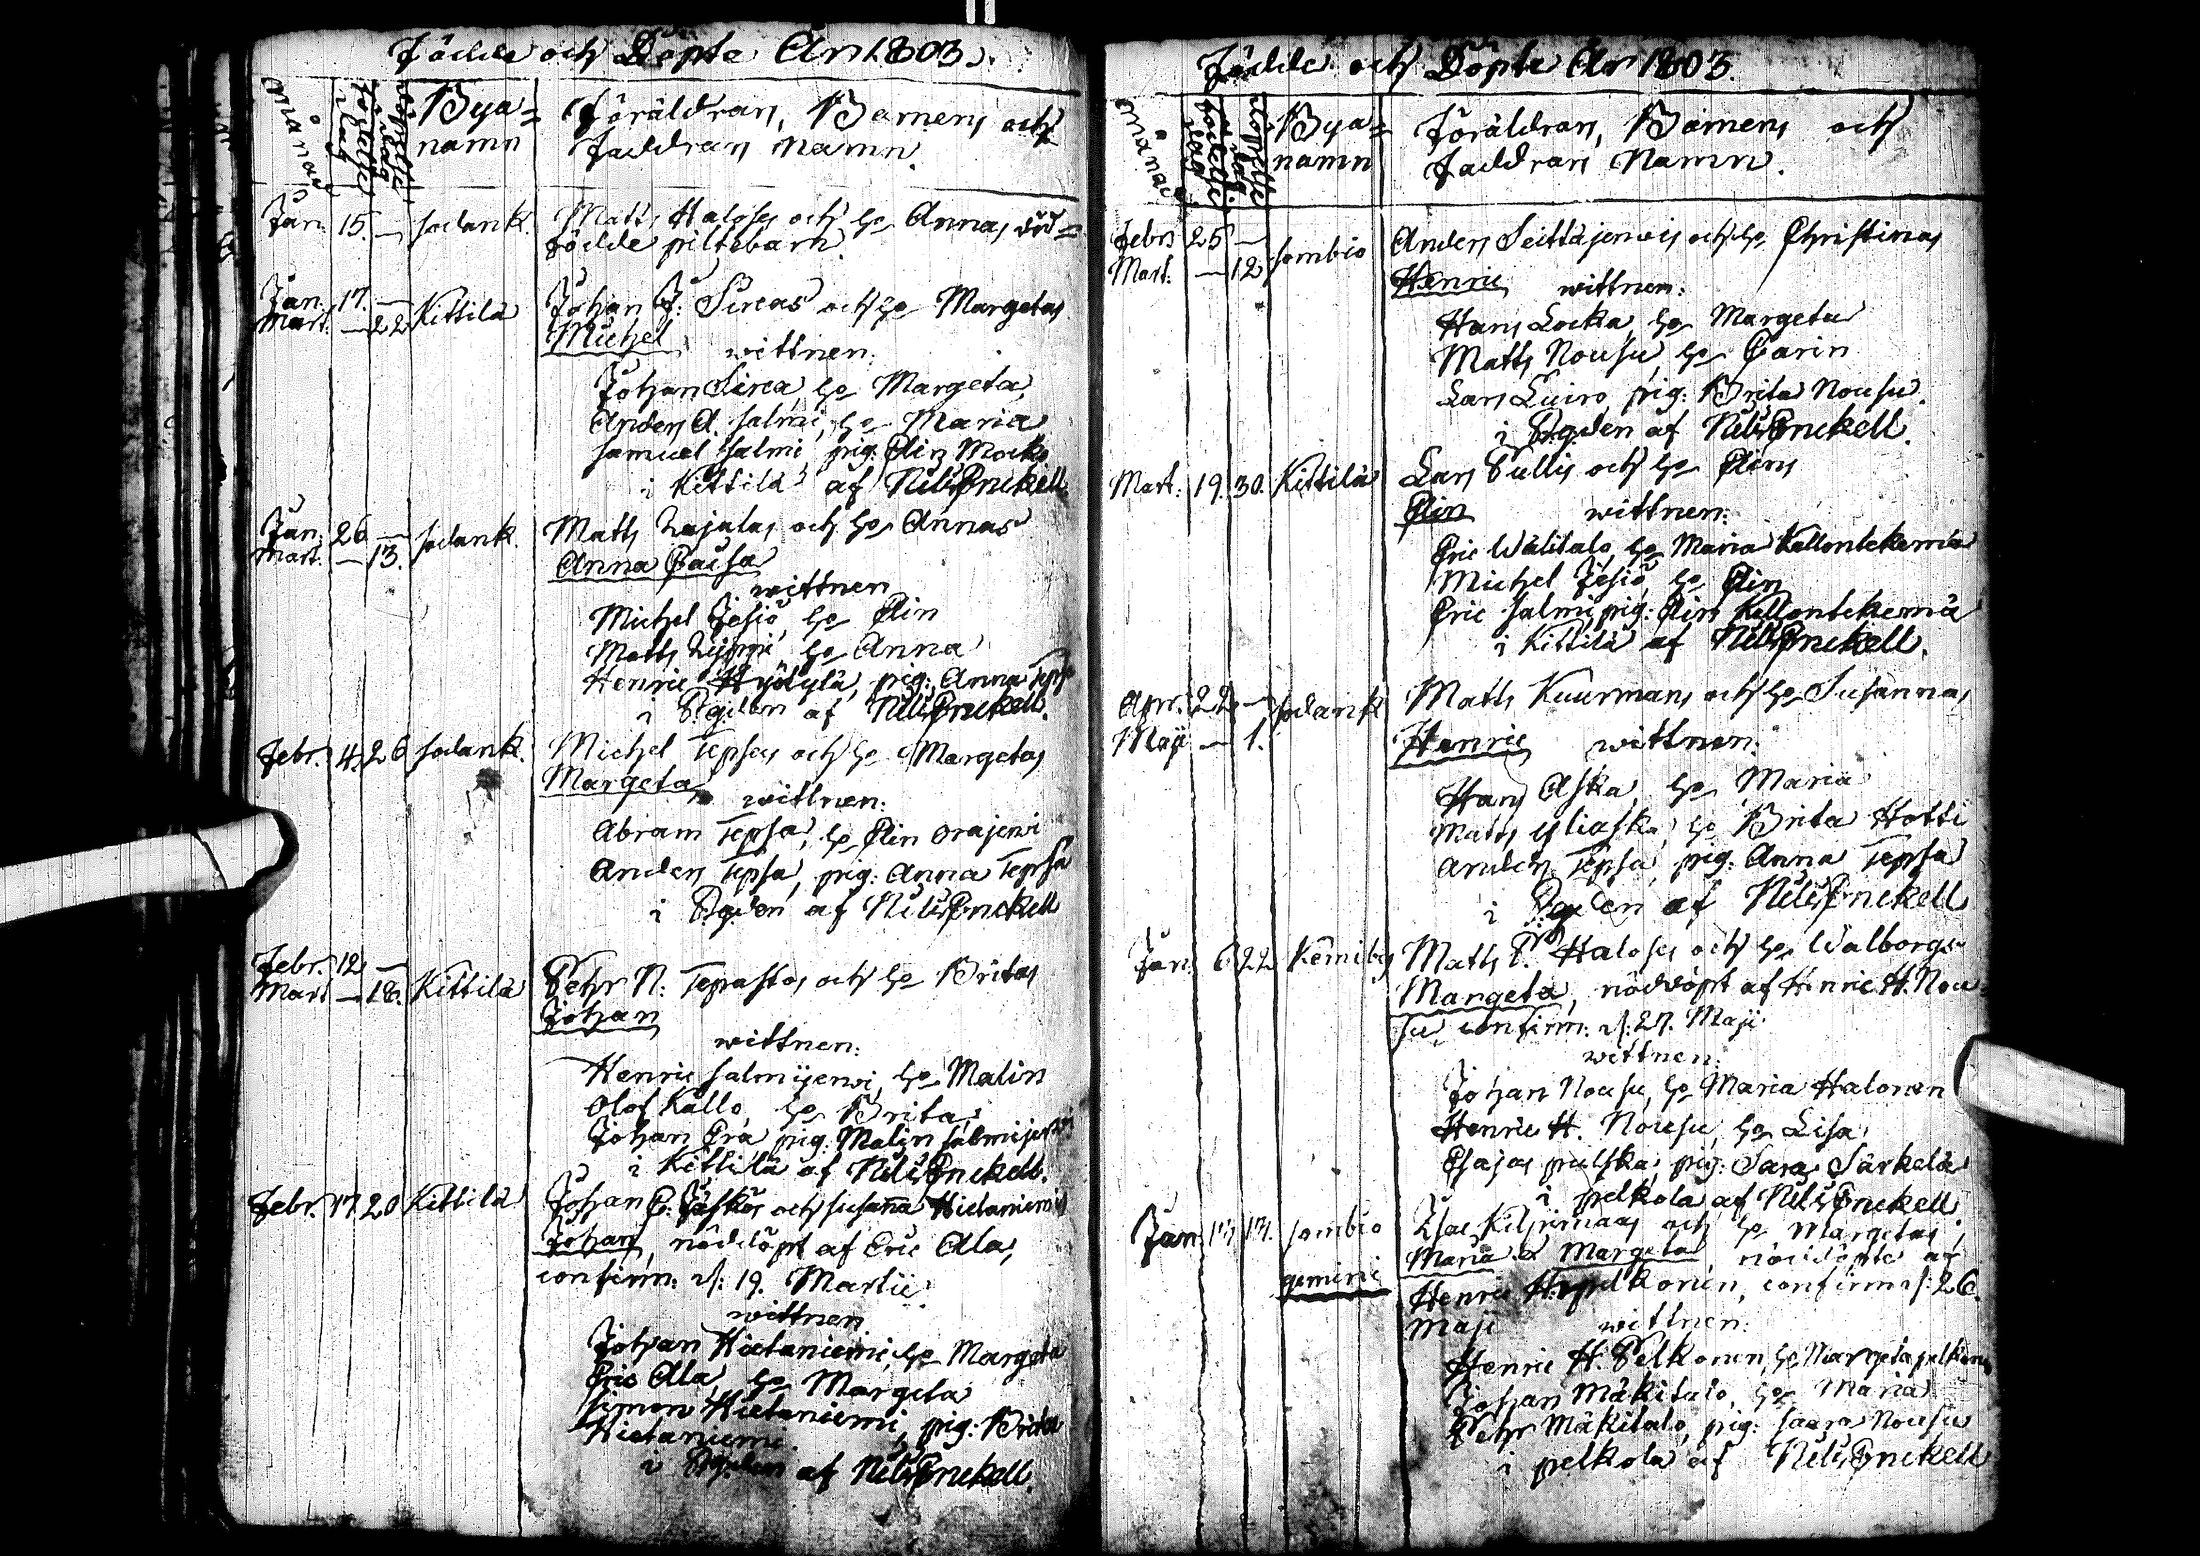 Födde och Döpte År 1803.
Månad
födelse dag
döpelse dag
Bya=
namn
Föräldrars, Barnens och
Faddrars Namn.
Jan: 15. — Sodank. Matts Haloses och h:o Annas död=
födde piltebarn.
Jan. 17. —
Mart. — 22 Kittilä Johan J: Sircas och h:o Margetas
Michel wittnen:
Johan Sirca, h:o Margeta,
Anders A. Salmi, h:o Maria
Samuel Salmi pig: Elin Mocko
i Kittilä af Nils Enckell.
Jan. 26 —
Mart. — 13. Sodank. Matts Lajalas och h:o Annas
Anna Caisa
wittnen
Michel Jesiö, h:o Elin
Matts h:o Anna
Henric Hyötylä, pig: Anna Teps
i S:gden af Nils Enckell.
Febr. 4. 26 Sodank. Michel Tepsas och h:o Margetas
Margeta wittnen:
Abram Tepsa, h:o Elin Orajerwi
Anders Tepsa, pig: Anna Tepsa
i S:gden af Nils Enckell
Febr. 12. —
Mart — 18. Kittilä Pehr N: Tepastos och h:o Britas
Johan
wittnen:
Henric Salmijerwi, h:o Malin
Olof Kallo, h:o Brita,
Johan Erä pig: Malin Salmijerwi
i Kittilä af Nils Enckell.
Febr. 17. 20 Kittilä Johan E: Jäskös och Susanna Hietaniemis
Johan, nöddöpt af Eric Ala,
confirm: d: 19. Martii
wittnen
Johan Hietaniemi, h:o Margeta
Eric Ala, h:o Margeta
Simon Hietaniemi, pig: Brita
Hietaniemi.
i S:gden af Nils Enckell.
Födde och Döpte År 1803.
Månad
födelse dag
döpelse dag
Bya=
namn
Föräldrars, Barnens och
Faddrars Namn.
Febr 25 —
Mart. — 12 Sombio Anders Seittäjerwis och h:o Christinas
Henric wittnen:
Hans Locka, h:o Margeta
Matts Nousu, h:o Carin
Lars Luiro pig: Brita Nousu.
i S:gden af Nils Enckell.
Mart. 19. 30. Kittilä Lars Pullis och h:o Elins
Elin wittnen:
Eric Wälitalo, h:o Maria Kallontekemä
Michel Jesiö, h:o Elin
Eric Salmi, pig: Elin Kallontekemä
i Kittilä af Nils Enckell.
Apr. 22. — Sodank Matts Kuurmans och h:o Susannas
Maji — 1. Henric wittnen:
Hans Aska h:o Maria
Matts Yliaska, h:o Brita Hotti
Anders Tepsa, pig: Anna Tepsa
i S:gden af Nils Enckell
Jan. 6 22 Kemiby Matts P. Haloses och h:o Walborgs
Margeta, nöddöpt af Henric H. Nou=
su, confirm: d: 27. Maji
wittnen:
Johan Nousu, h:o Maria Halonen
Henric H. Nousu, h:o Lisa
Esajas pulska, pig: Sara Särkelä
i pelkola af Nils Enckell
Jan 13 13. Sombio Isac Kilpimaas och h:o Margetas
gemini Maria & Margeta nöddöpte af
Henric H: pelkonen, confirm d: 26.
Maji wittnen:
Henric H. Pelkonen, h:o Margeta pelkonen
Johan Mäkitalo, h:o Maria
Pehr Mäkitalo, pig: Saara Nousu
i pelkola af Nils Enckell